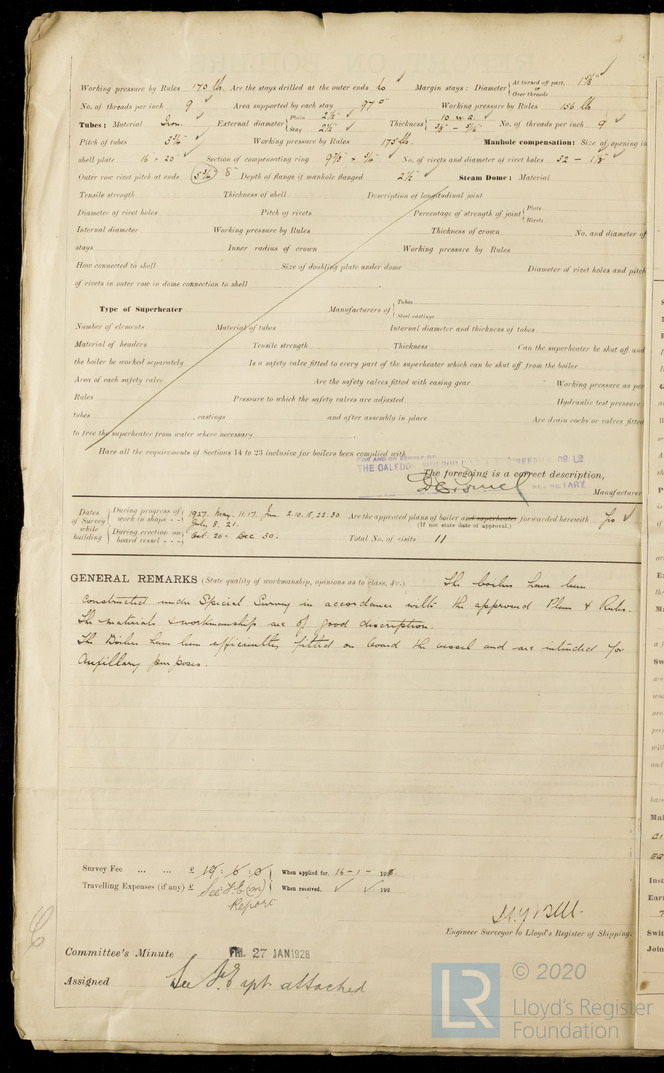 Working pressure by Rules 170 lb. Are the stays drilled at the outer ends no Margin stays: Diameter At turned off part, 1⅞" or Over threads
No. of threads per inch 9 Area supported by each stay 97 Working pressure by Rules 156 lb
Tubes: Material Iron External diameter Plain 2½" Stay 2½" Thickness 10 w.g. No. of threads per inch 9
Pitch of tubes Working pressure by Rules 175 lb. Manhole compensation: Size of opening in
shell plate 16 × 20" Section of compensating ring No. of rivets and diameter of rivet holes 32 –
Outer row rivet pitch at ends 8" Depth of flange if manhole flanged Steam Dome: Material
Tensile strength Thickness of shell Description of longitudinal joint
Diameter of rivet holes Pitch of rivets Percentage of strength of joint Plate Rivets
Internal diameter Working pressure by Rules Thickness of crown No. and diameter of
stays Inner radius of crown Working pressure by Rules
How connected to shell Size of doubling plate under dome Diameter of rivet holes and pitch
of rivets in outer row in dome connection to shell
Type of Superheater Manufacturers of Tubes Steel castings
Number of elements Material of tubes Internal diameter and thickness of tubes
Material of headers Tensile strength Thickness Can the superheater be shut off and
the boiler be worked separately Is a safety valve fitted to every part of the superheater which can be shut off from the boiler
Area of each safety valve Are the safety valves fitted with easing gear Working pressure as per
Rules Pressure to which the safety valves are adjusted Hydraulic test pressure
tubes castings and after assembly in place Are drain cocks or valves fitted
to free the superheater from water where necessary
Have all the requirements of Sections 14 to 23 inclusive for boilers been complied with
FOR AND ON BEHALF OF
THE CALEDON SHIPBUILDING & ENGINEERING CO LD
The foregoing is a correct description,
SECRETARY
Manufacturer
Dates of Survey while building During progress of work in shops - - 1927. May. 11.17. Jun. 2.10.15.22.30 July. 8. 21. Are the approved plans of boiler and superheater forwarded herewith Yes
(If not state date of approval.)
During erection on board vessel - - - Oct. 26 - Dec. 30. Total No. of visits 11
GENERAL REMARKS (State quality of workmanship, opinions as to class, &c.) The boilers have been
constructed under Special Survey in accordance with the approved Plans & Rules.
The materials & workmanship are of good description.
The Boilers have been efficiently fitted on board the vessel and are intended for
Auxillary purposes.
Survey Fee ... ... £ 19 : 6 : 0 When applied for, 16 - 1 - 1928.
Travelling Expenses (if any) £ See F.E. (m) Report When received, 192
Engineer Surveyor to Lloyd's Register of Shipping.
Committee's Minute FRI. 27 JAN 1928
Assigned See F.E. rpt attached
© 2020
LR
Lloyd's Register
Foundation